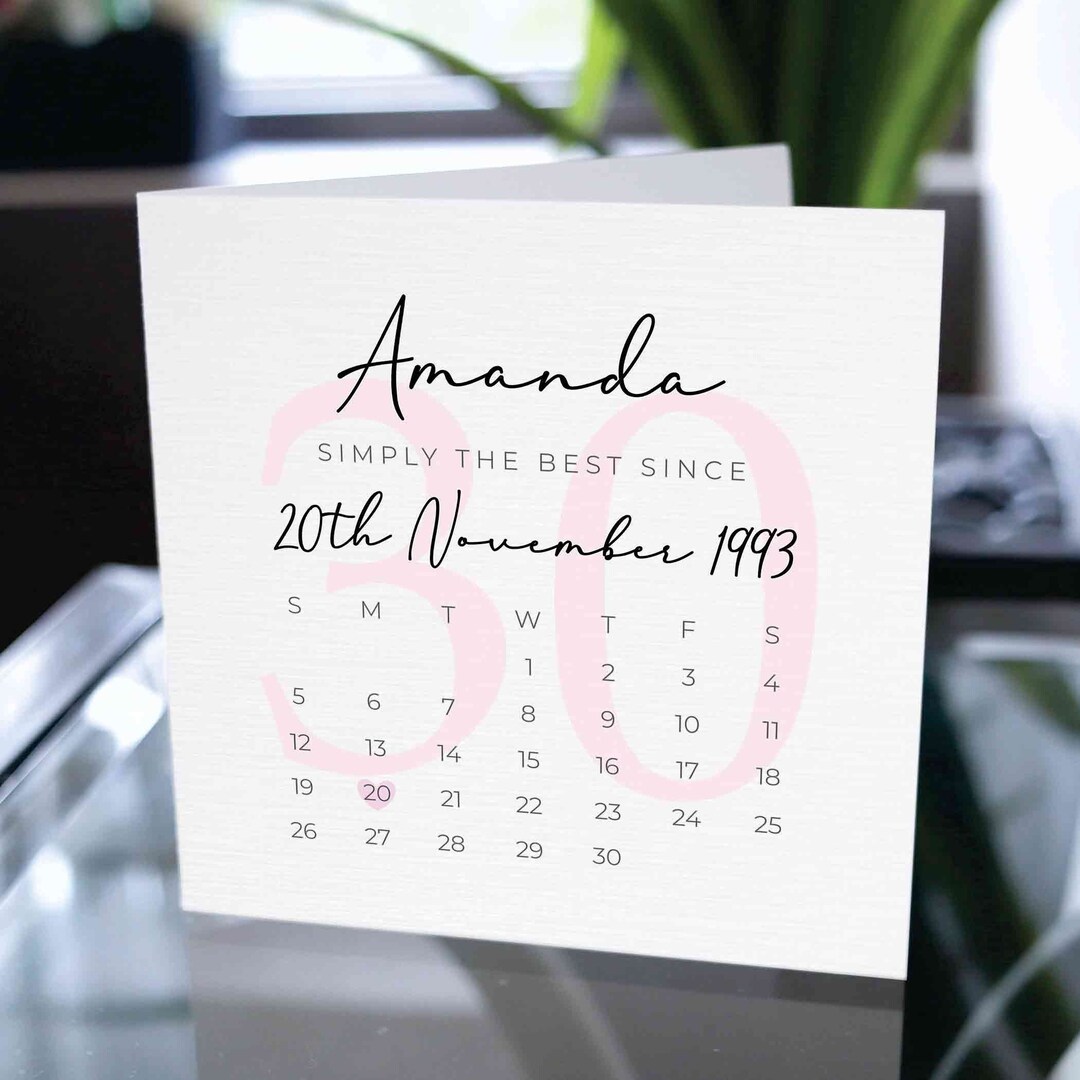 Amanda
30
SIMPLY THE BEST SINCE
20th November 1993
S M T W T F S
1 2 3 4
5 6 7 8 9 10 11
12 13 14 15 16 17 18
19 20 21 22 23 24 25
26 27 28 29 30